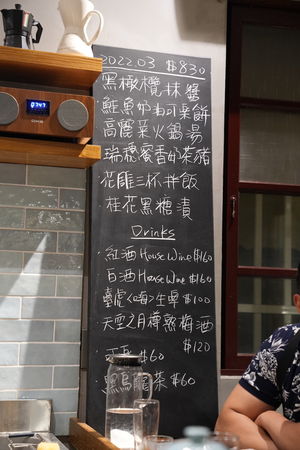 2022.03 $830
黑橄欖抹醬
鮭魚奶油可樂餅
高麗菜火鍋湯
瑞穗蜜香奶茶豬
花雕三杯拌飯
桂花黑糖漬
Drinks
紅酒 House Wine $160
白酒 House Wine $160
臺虎 生啤 $100
天雪之月樽熟梅酒
$120
$60
黑烏龍茶 $60